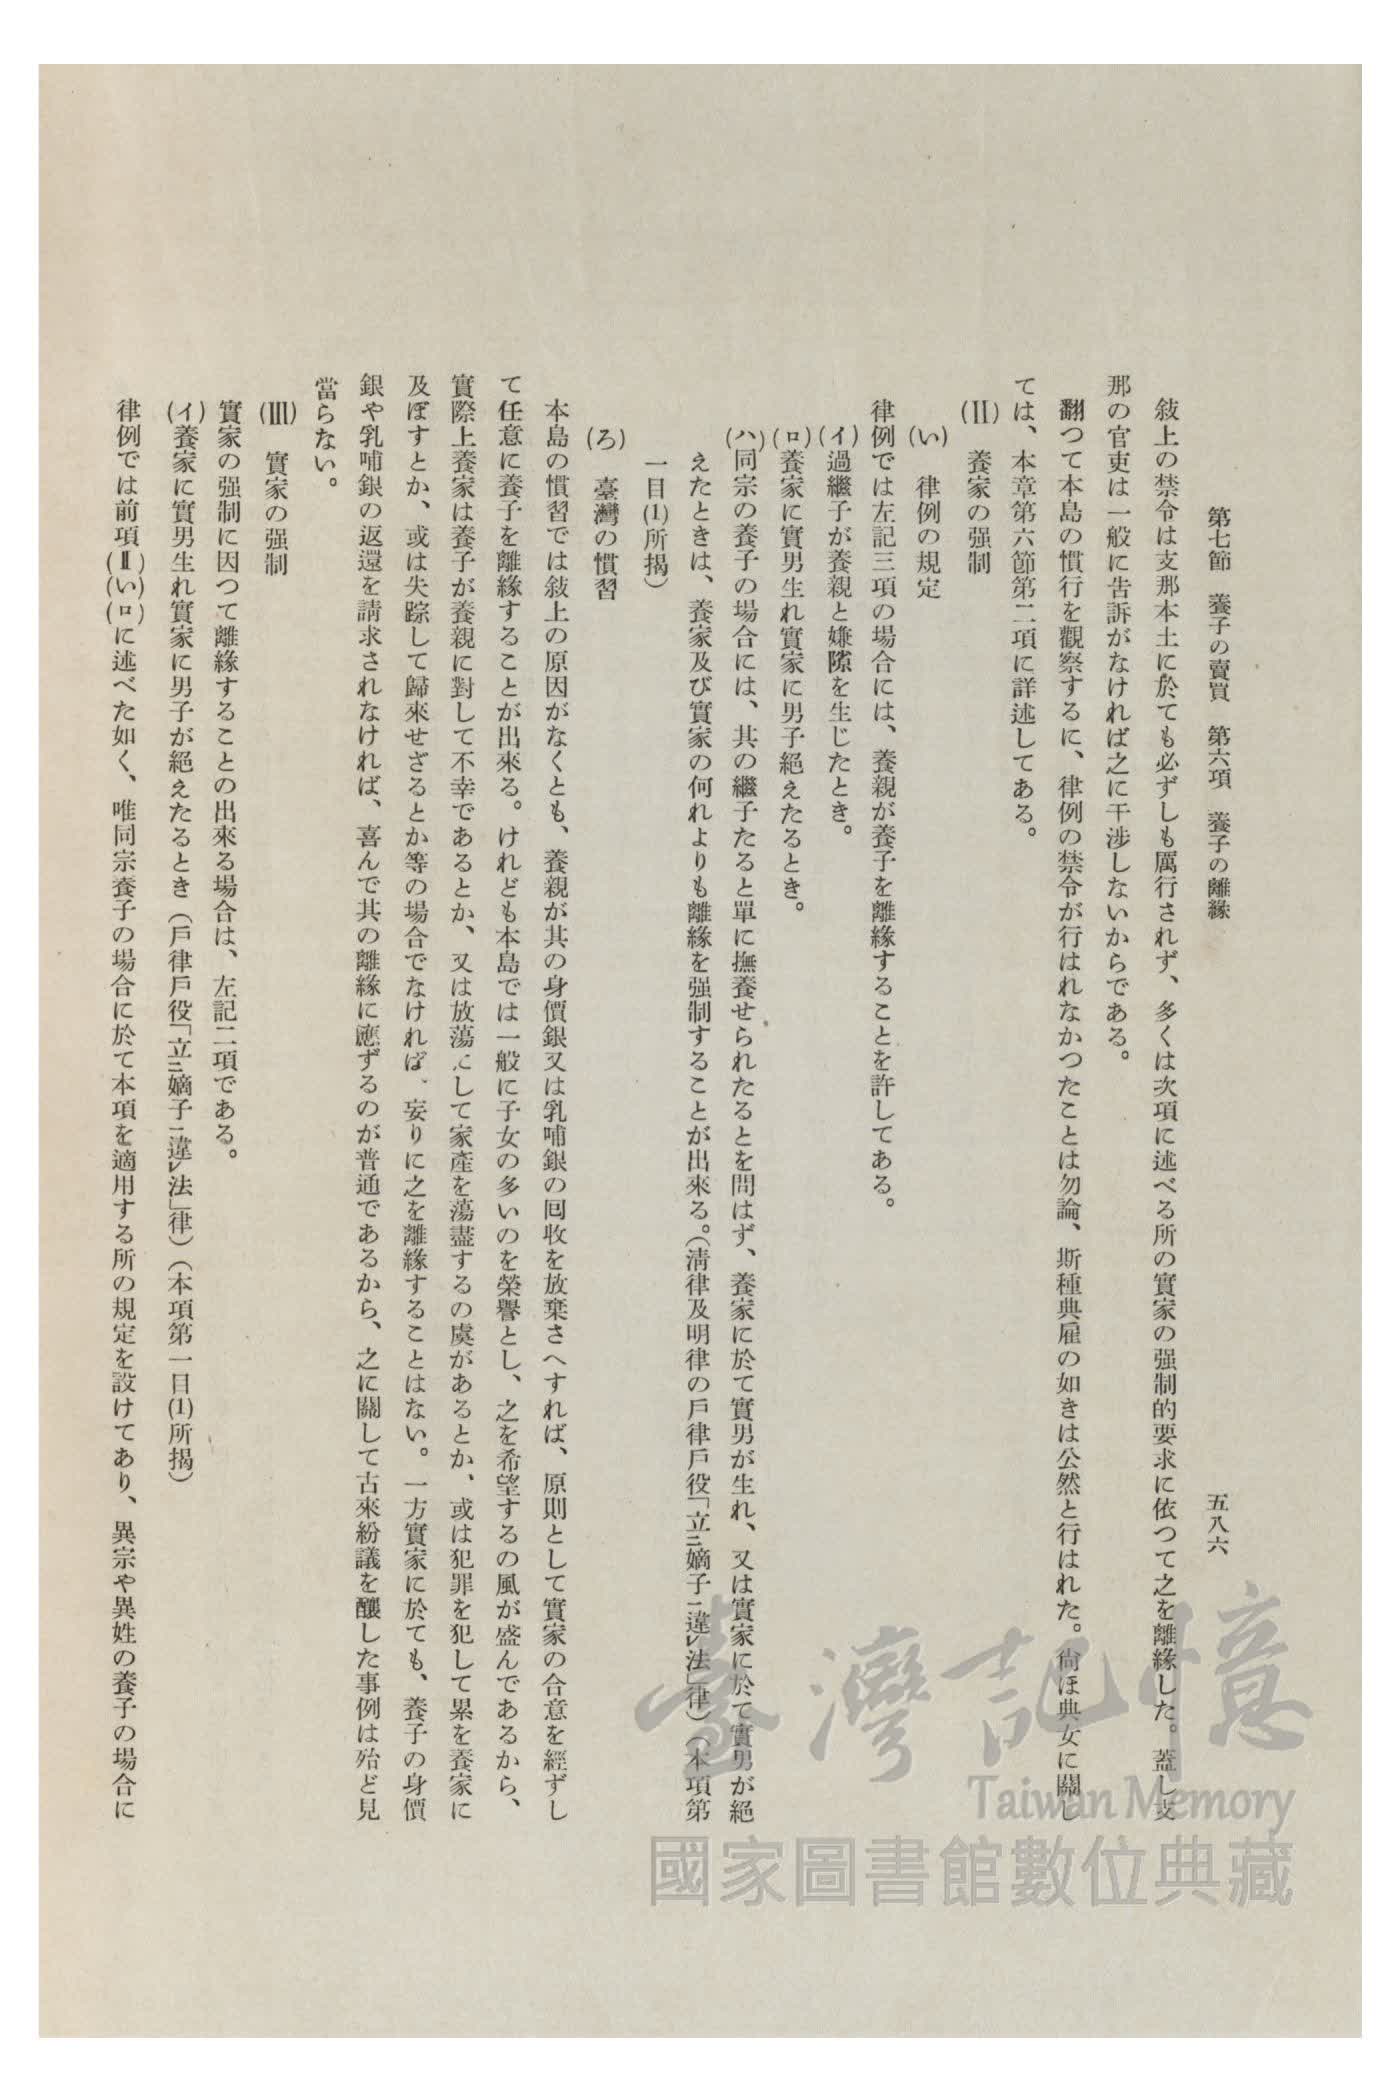 第七節　養子の賣買　第六項　養子の離緣
五八六
敍上の禁令は支那本土に於ても必ずしも厲行されず、多くは次項に述べる所の實家の强制的要求に依つて之を離緣した。蓋し支
那の官吏は一般に告訴がなければ之に干涉しないからである。
翻つて本島の慣行を觀察するに、律例の禁令が行はれなかつたことは勿論、斯種典雇の如きは公然と行はれた。尙ほ典女に關し
ては、本章第六節第二項に詳述してある。
(II)　養家の强制
(い)　律例の規定
律例では左記三項の場合には、養親が養子を離緣することを許してある。
(イ)過繼子が養親と嫌隙を生じたとき。
(ロ)養家に實男生れ實家に男子絕えたるとき。
(ハ)同宗の養子の場合には、其の繼子たると單に撫養せられたるとを問はず、養家に於て實男が生れ、又は實家に於て實男が絕
えたときは、養家及び實家の何れよりも離緣を强制することが出來る。(淸律及明律の戶律戶役「立三嫡子二違レ法」律)(本項第
一目(1)所揭)
(ろ)　臺灣の慣習
本島の慣習では敍上の原因がなくとも、養親が其の身價銀又は乳哺銀の囘收を放棄さへすれば、原則として實家の合意を經ずし
て任意に養子を離緣することが出來る。けれども本島では一般に子女の多いのを榮譽とし、之を希望するの風が盛んであるから、
實際上養家は養子が養親に對して不幸であるとか、又は放蕩にして家產を蕩盡するの虞があるとか、或は犯罪を犯して累を養家に
及ぼすとか、或は失踪して歸來せざるとか等の場合でなければ、妄りに之を離緣することはない。一方實家に於ても、養子の身價
銀や乳哺銀の返還を請求されなければ、喜んで其の離緣に應ずるのが普通であるから、之に關して古來紛議を釀した事例は殆ど見
當らない。
(III)　實家の强制
實家の强制に因つて離緣することの出來る場合は、左記二項である。
(イ)養家に實男生れ實家に男子が絕えたるとき(戶律戶役「立三嫡子二違レ法」律)(本項第一目(1)所揭)
律例では前項(II)(い)(ロ)に述べた如く、唯同宗養子の場合に於て本項を適用する所の規定を設けてあり、異宗や異姓の養子の場合に
臺灣記憶
Taiwan Memory
國家圖書館數位典藏